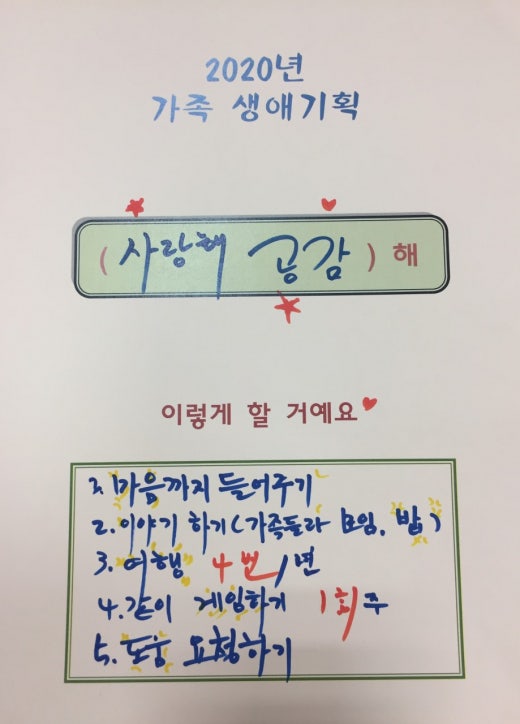 2020년
가족 생애기획
( 사랑해 공감 ) 해
이렇게 할 거예요
1. 마음까지 들어주기
2. 이야기 하기 (가족들과 모임, 밥)
3. 여행 4번/년
4. 같이 게임하기 1회/주
5. 도움 요청하기